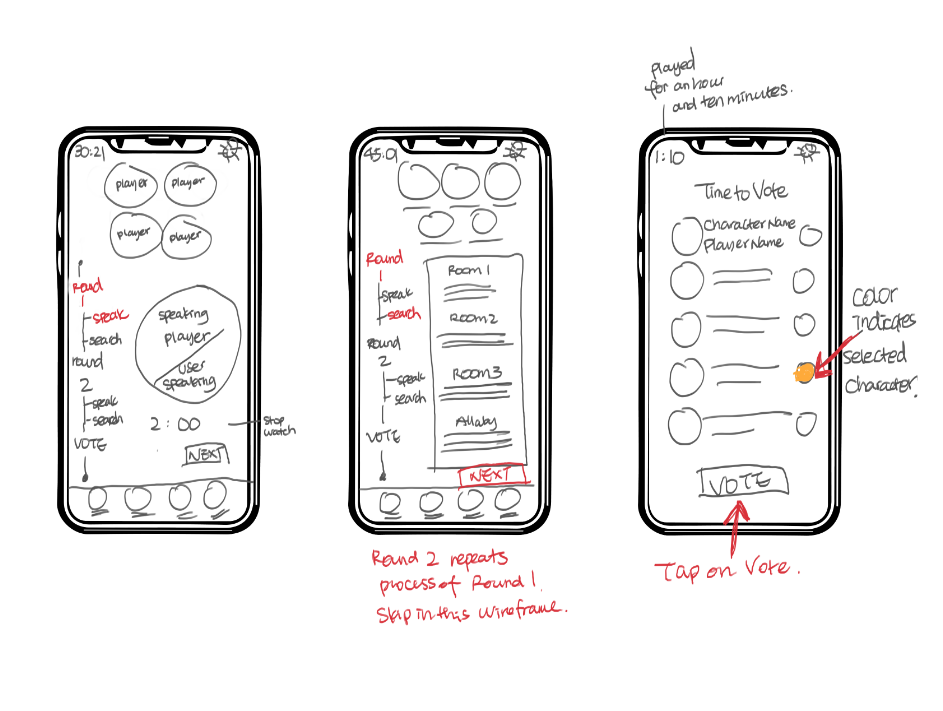 30:21
player
player
player
player
Round
1
speak
search
round
2
speak
search
VOTE
speaking
player
user
speaking
2:00
stop
watch
NEXT
45:01
Round
1
speak
search
Round
2
speak
search
VOTE
Room 1
Room 2
Room 3
NEXT
Round 2 repeats
process of Round 1.
Skip in this wireframe.
played
for an hour
and ten minutes.
1:10
Time to Vote
Character Name
Player Name
VOTE
color
indicates
selected
character.
Tap on Vote.